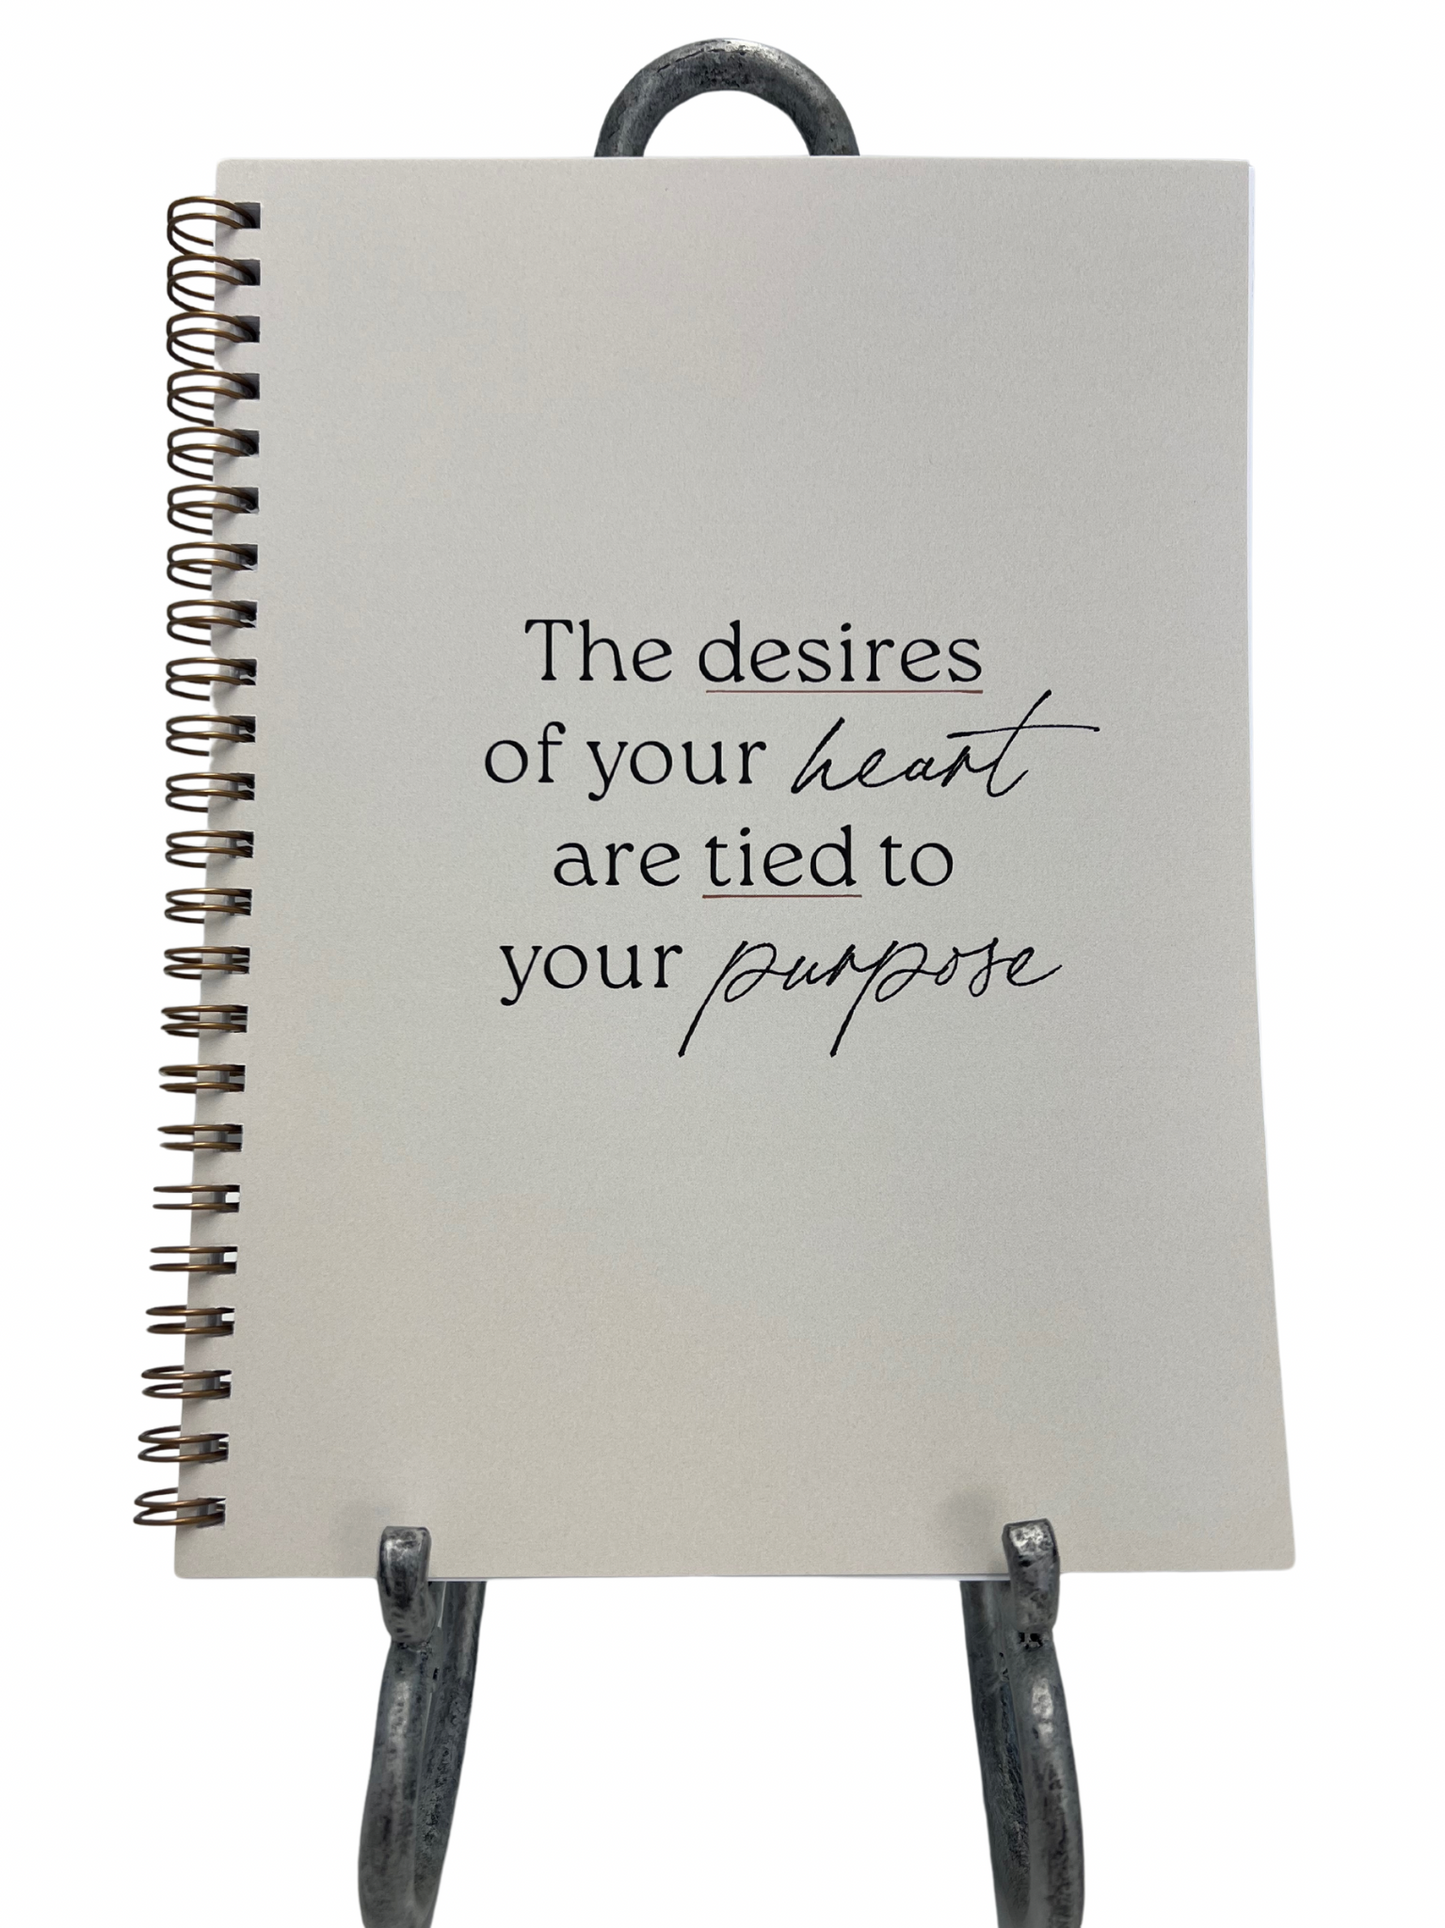 The desires
of your heart
are tied to
your purpose